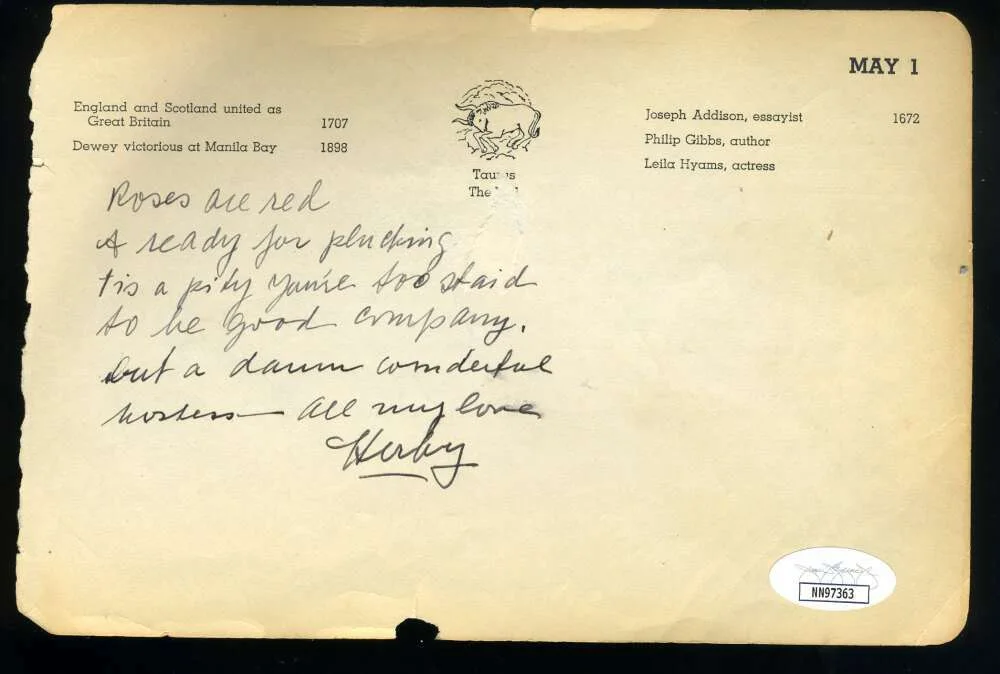 MAY 1
England and Scotland united as
Great Britain 1707
Dewey victorious at Manila Bay 1898
Taurus
The
Joseph Addison, essayist 1672
Philip Gibbs, author
Leila Hyams, actress
Roses are red
& ready for plucking
tis a pity you're too staid
to be good company.
but a damn wonderful
hostess — all my love
Herby
NN97363